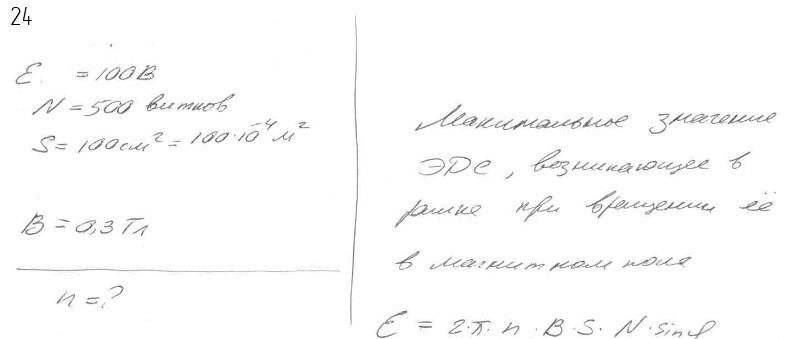 24
Ɛ = 100В
N = 500 витков
S = 100 см² = 100·10⁻⁴ м²
B = 0,3 Тл
n = ?
Максимальное значение
ЭДС, возникающее в
рамке при вращении её
в магнитном поле
Ɛ = 2·π·n·B·S·N·sinφ